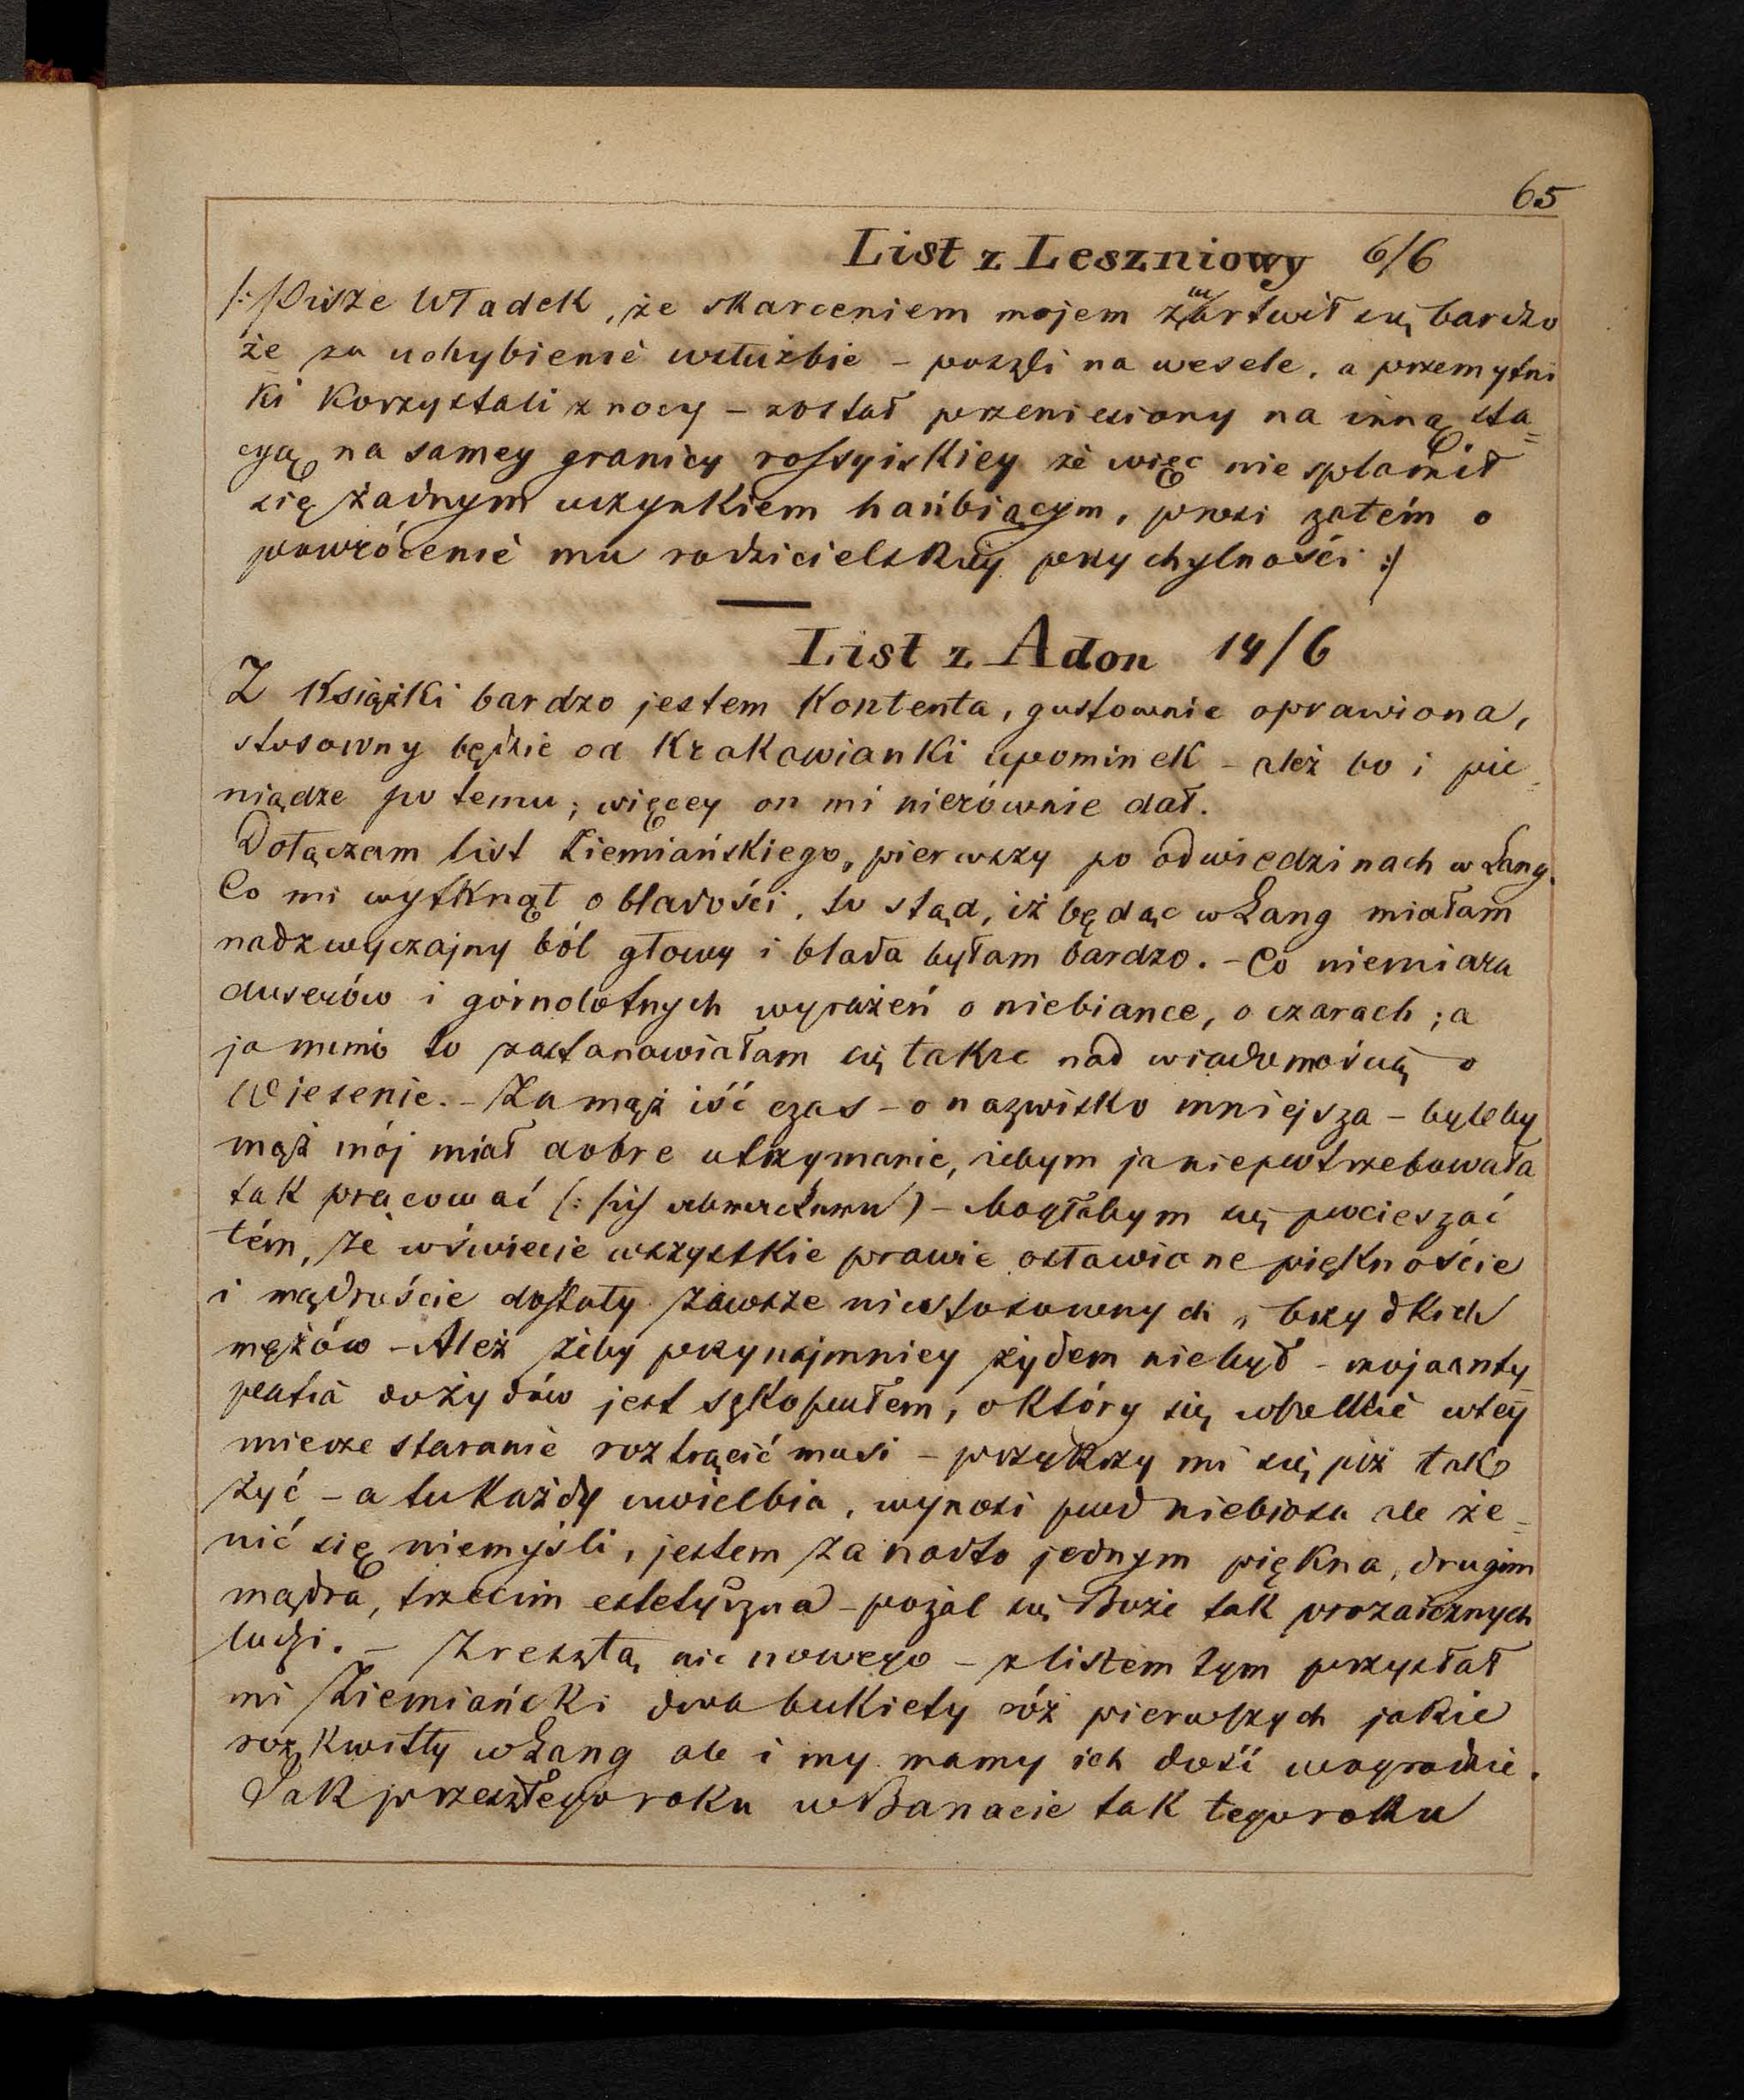 65
List z Leszniowy 6/6
/: Pisze Władek, że skarceniem mojem zmartwił się bardzo
że za uchybienie wsłużbie – poszli na wesele, a przemytni
ki korzystali z nocy – został przeniesiony na inną sta=
cyą na samey granicy rossyiskiey że więc nie splamił
się żadnym uczynkiem hańbiącym, prosi zatém o
powrócenie mu rodzicielskiéj przychylności :/
List z Adon 14/6
Z Książki bardzo jestem Kontenta, gustownie oprawiona,
stosowny będzie od Krakowianki upominek – ależ bo i pie=
niądze po temu; więcey on mi nierównie dał.
Dołączam list Ziemiańskiego, pierwszy po odwiedzinach w Lang.
Co mi wytknął o bladości, to stąd, iż będąc w Lang miałam
nadzwyczajny ból głowy i blada byłam bardzo. – Co niemiara
duserów i górnolotnych wyrażeń o niebiance, o czarach; a
ja mimo to zastanawiałam się także nad wiadomością o
Wiesenie. – Za mąż iść czas – o nazwisko mniejsza – byleby
mąż mój miał dobre utrzymanie, żebym ja niepotrzebowała
tak pracować (: ) – Mogłabym się pocieszać
tém, że wświecie wszystkie prawie osławione pięknoście
i mądroście dostały zawsze niestosownych, brzydkich
mężów – Ależ żeby przynajmniey żydem niebył – moja anty
patia dożydów jest szkopułem, o który się wszelkie wtéj
mierze staranie roztrącić musi – przykrzy mi się już tak
żyć – a tu każdy uwielbia, wynosi pod niebiosa ale że=
nić się niemyśli, jestem za nadto jednym piękna, drugim
mądra, trzecim estetyczna – pożal się Boże tak prozaicznych
ludzi. – Zresztą nic nowego – z listem tym przysłał
mi Ziemiański dwa bukiety róż pierwszych jakie
rozkwitły w Lang ale i my mamy ich dość wogrodzie.
Jak przeszłego roku w Banacie tak tegoroku